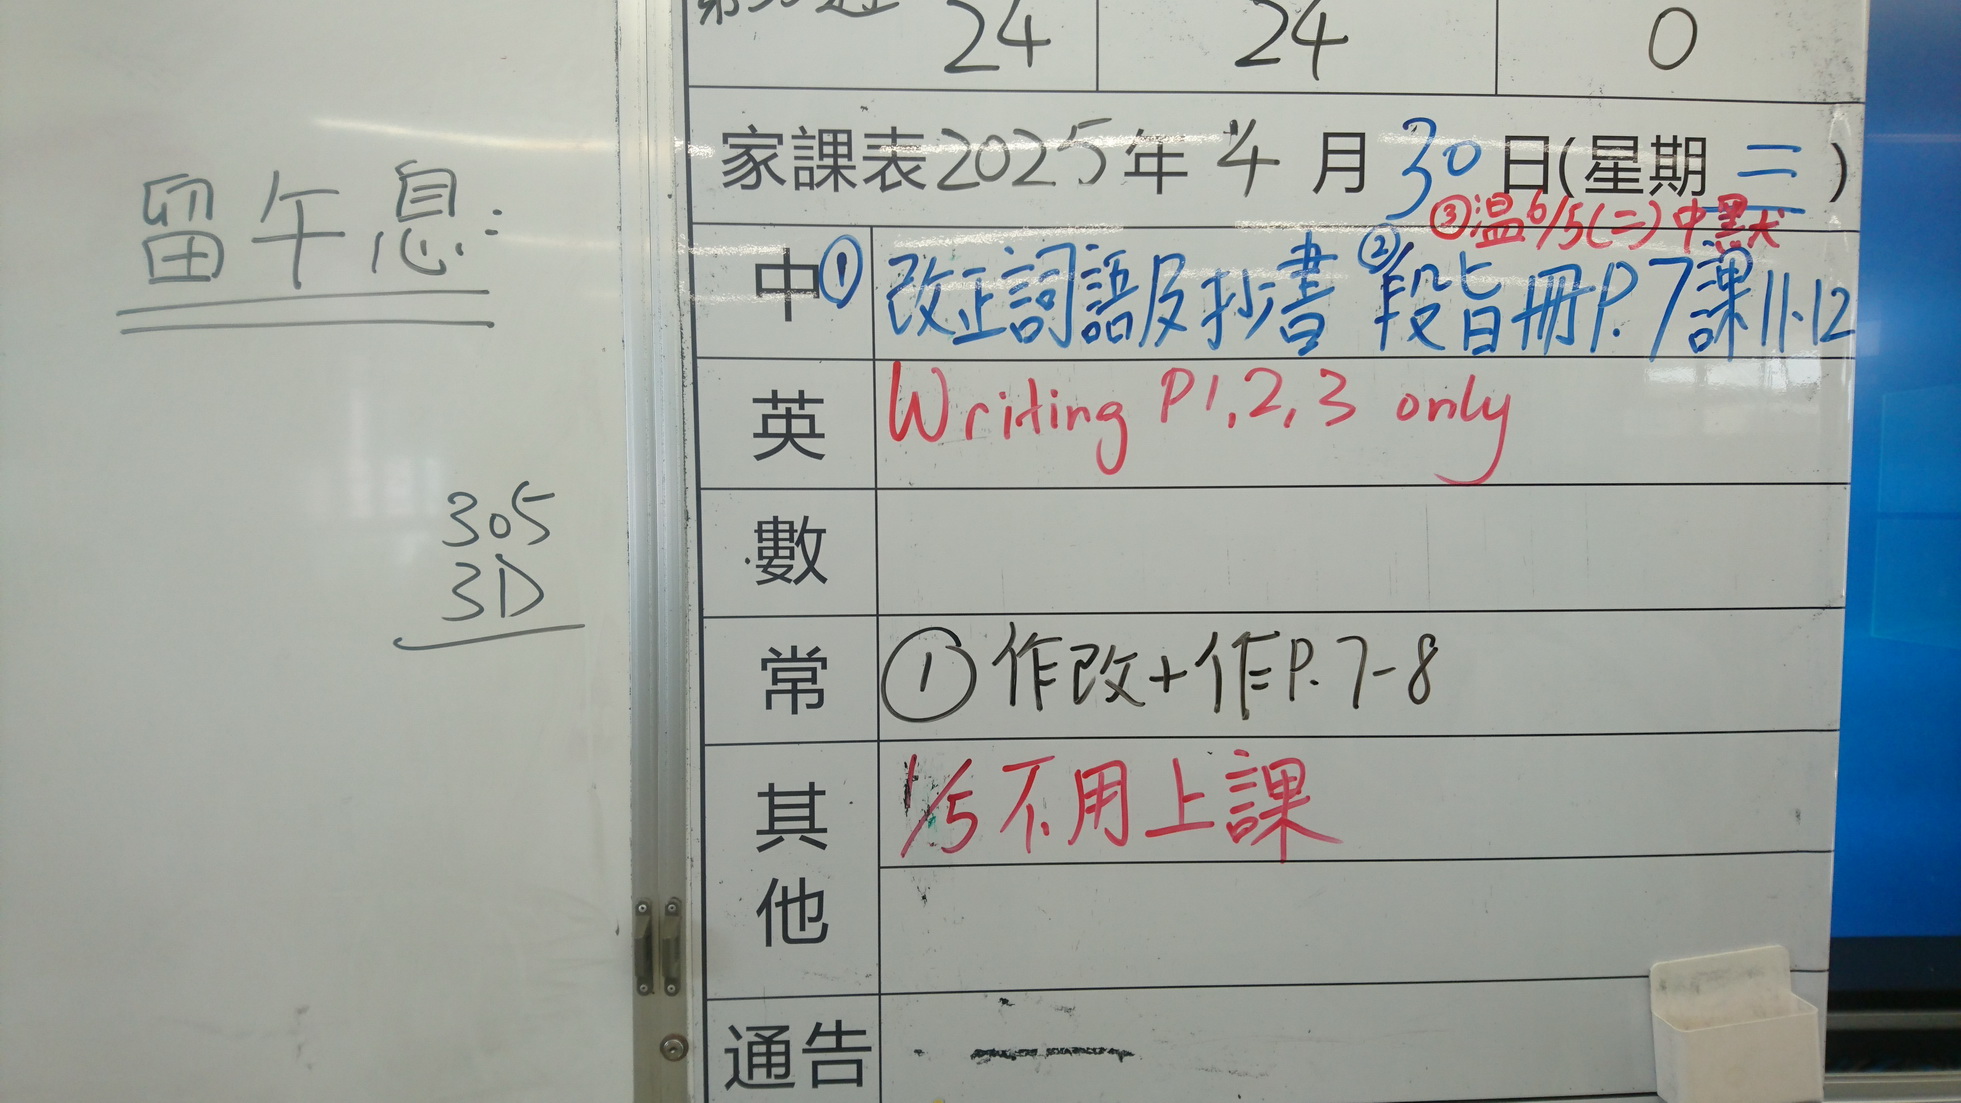 留午息:
305
3D
24 24 0
家課表2025年4月30日(星期三)
③温6/5(二)中默
中 ①改正詞語及抄書 ②段旨冊P.7課11-12
英 Writing P1,2,3 only
數
常 ①作改+作P.7-8
其他 1/5不用上課
通告